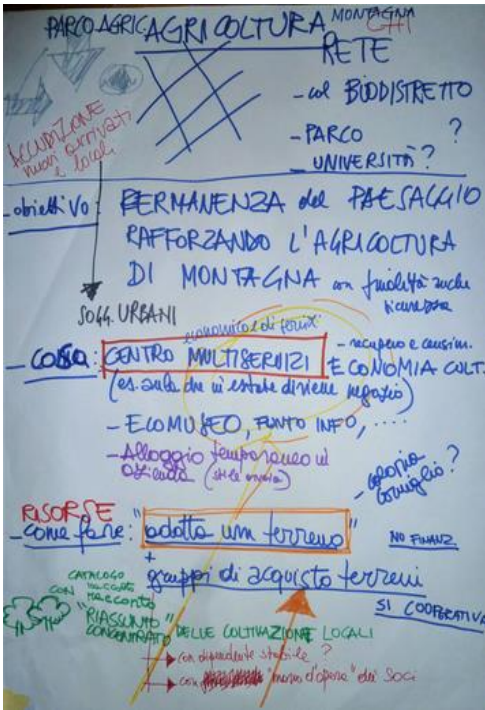 PARCO AGRIC AGRICOLTURA MONTAGNA
RETE
- col BIODISTRETTO
- PARCO ?
UNIVERSITÀ?
nuovi arrivati
e locali
- obiettivo: PERMANENZA del PAESAGGIO
RAFFORZANDO L'AGRICOLTURA
DI MONTAGNA con finalità anche
sicurezza
SOGG. URBANI
economico e di
- cosa: CENTRO MULTISERVIZI
- recupero e
ECONOMIA COLT.
(es. aula che in estate diviene negozio)
- ECOMUSEO, PUNTO INFO, ....
- Alloggio temporaneo in
azienda
?
RISORSE
- come fare: "adotta un terreno"
NO FINANZ.
+
gruppi di acquisto terreni
SI COOPERATIVA
CATALOGO
CON raccolto
racconto
"RIASSUNTO"
CONCENTRATO DELLE COLTIVAZIONE LOCALI
con dipendente stabile ?
con "mano d'opera" dei Soci